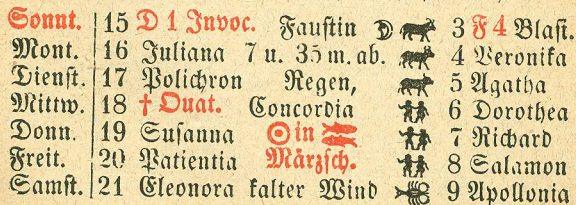 Sonnt. 15 D 1 Invoc. Faustin 3 F 4 Blasi.
Mont. 16 Juliana 7 u. 35 m. ab. 4 Veronika
Dienst. 17 Polichron Regen, 5 Agatha
Mittw. 18 † Quat. Concordia 6 Dorothea
Donn. 19 Susanna ☉ in ♓ 7 Richard
Freit. 20 Patientia Märzsch. 8 Salamon
Samst. 21 Eleonora kalter Wind 9 Apollonia